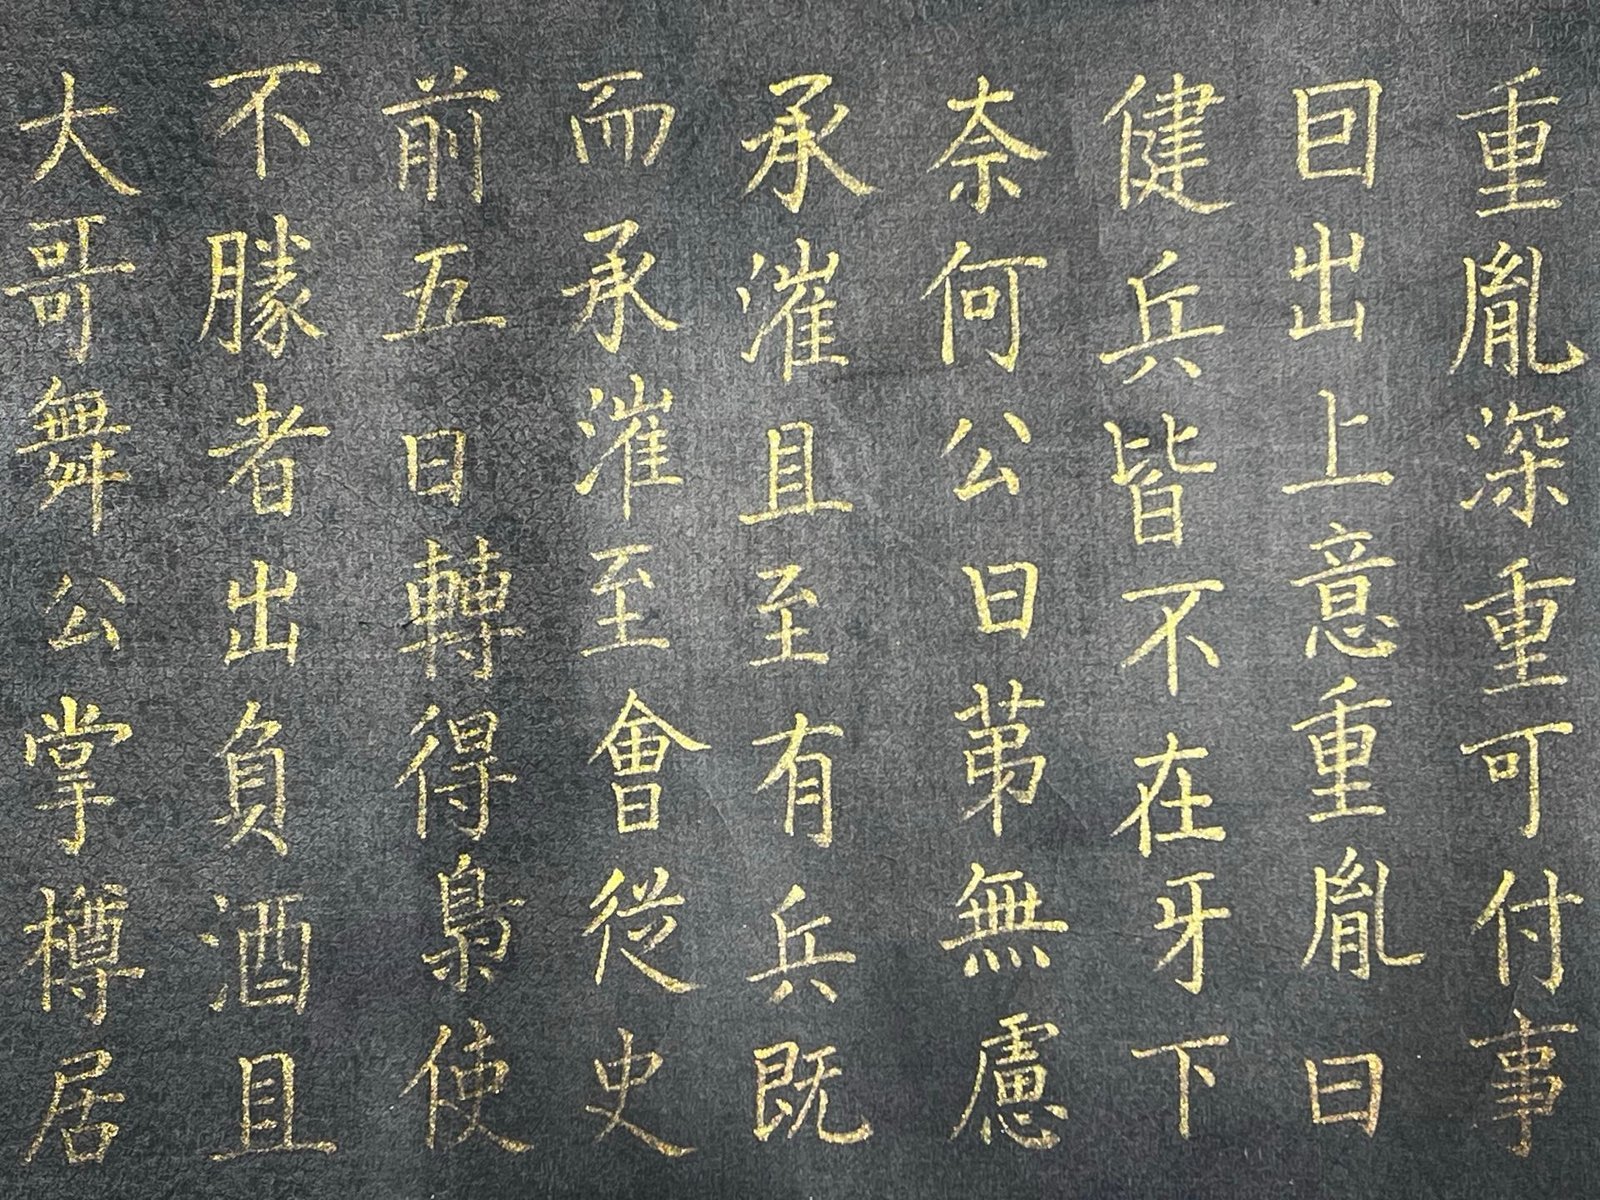 重胤深重可付事
囙出上意重胤曰
健兵皆不在牙下
奈何公曰苐無慮
承漼且至有兵既
而承漼至會從史
前五日轉得梟使
不勝者出負酒且
大哥舞公掌樽居